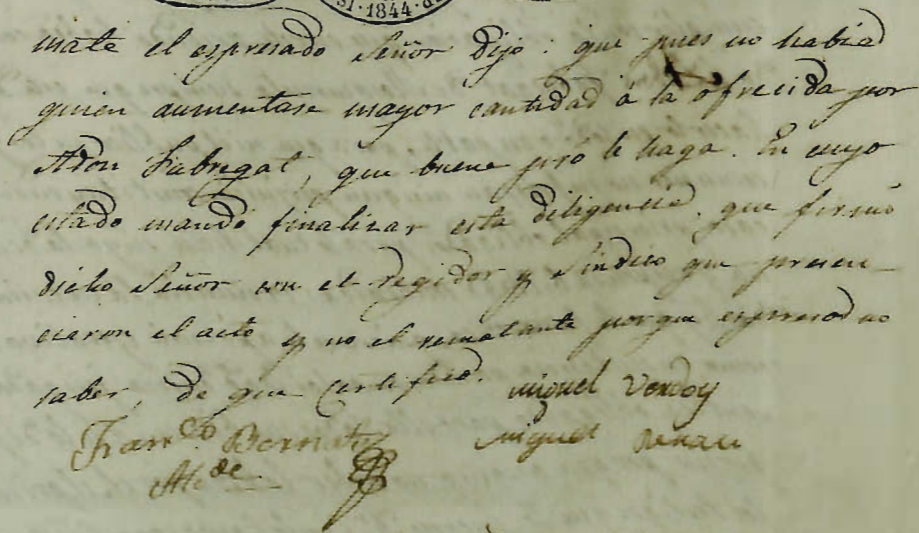 1844
mate el espresado Señor Dijo: que pues no habia
quien aumentase mayor cantidad á la ofrecida por
Fabregat, que buena pró le haga. En cuyo
estado mandó finalizar esta diligencia, que firmó
dicho Señor con el Regidor y Sindico que presen-
ciaron el acto y no el rematante porque espresó no
saber, de que certifico.
Miguel Verdoy
Fran.co Bernat Miguel Renau
Alc.de